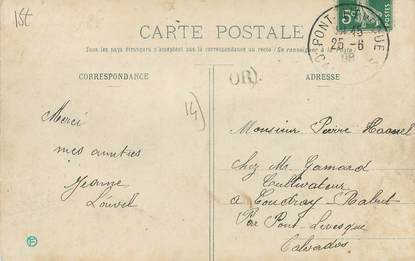 1st
CARTE POSTALE
Tous les pays étrangers n'acceptent pas la correspondance au recto (Se renseigner à la Poste)
CORRESPONDANCE
ADRESSE
5c
PONT-L'EVEQUE
25-6
08
OR
14)
Merci
mes amitiés
Jeanne
Louvel
Monsieur Pierre
chez Mr Gamard
Cultivateur
a Coudray Rabut
Par Pont-Levesque
Calvados